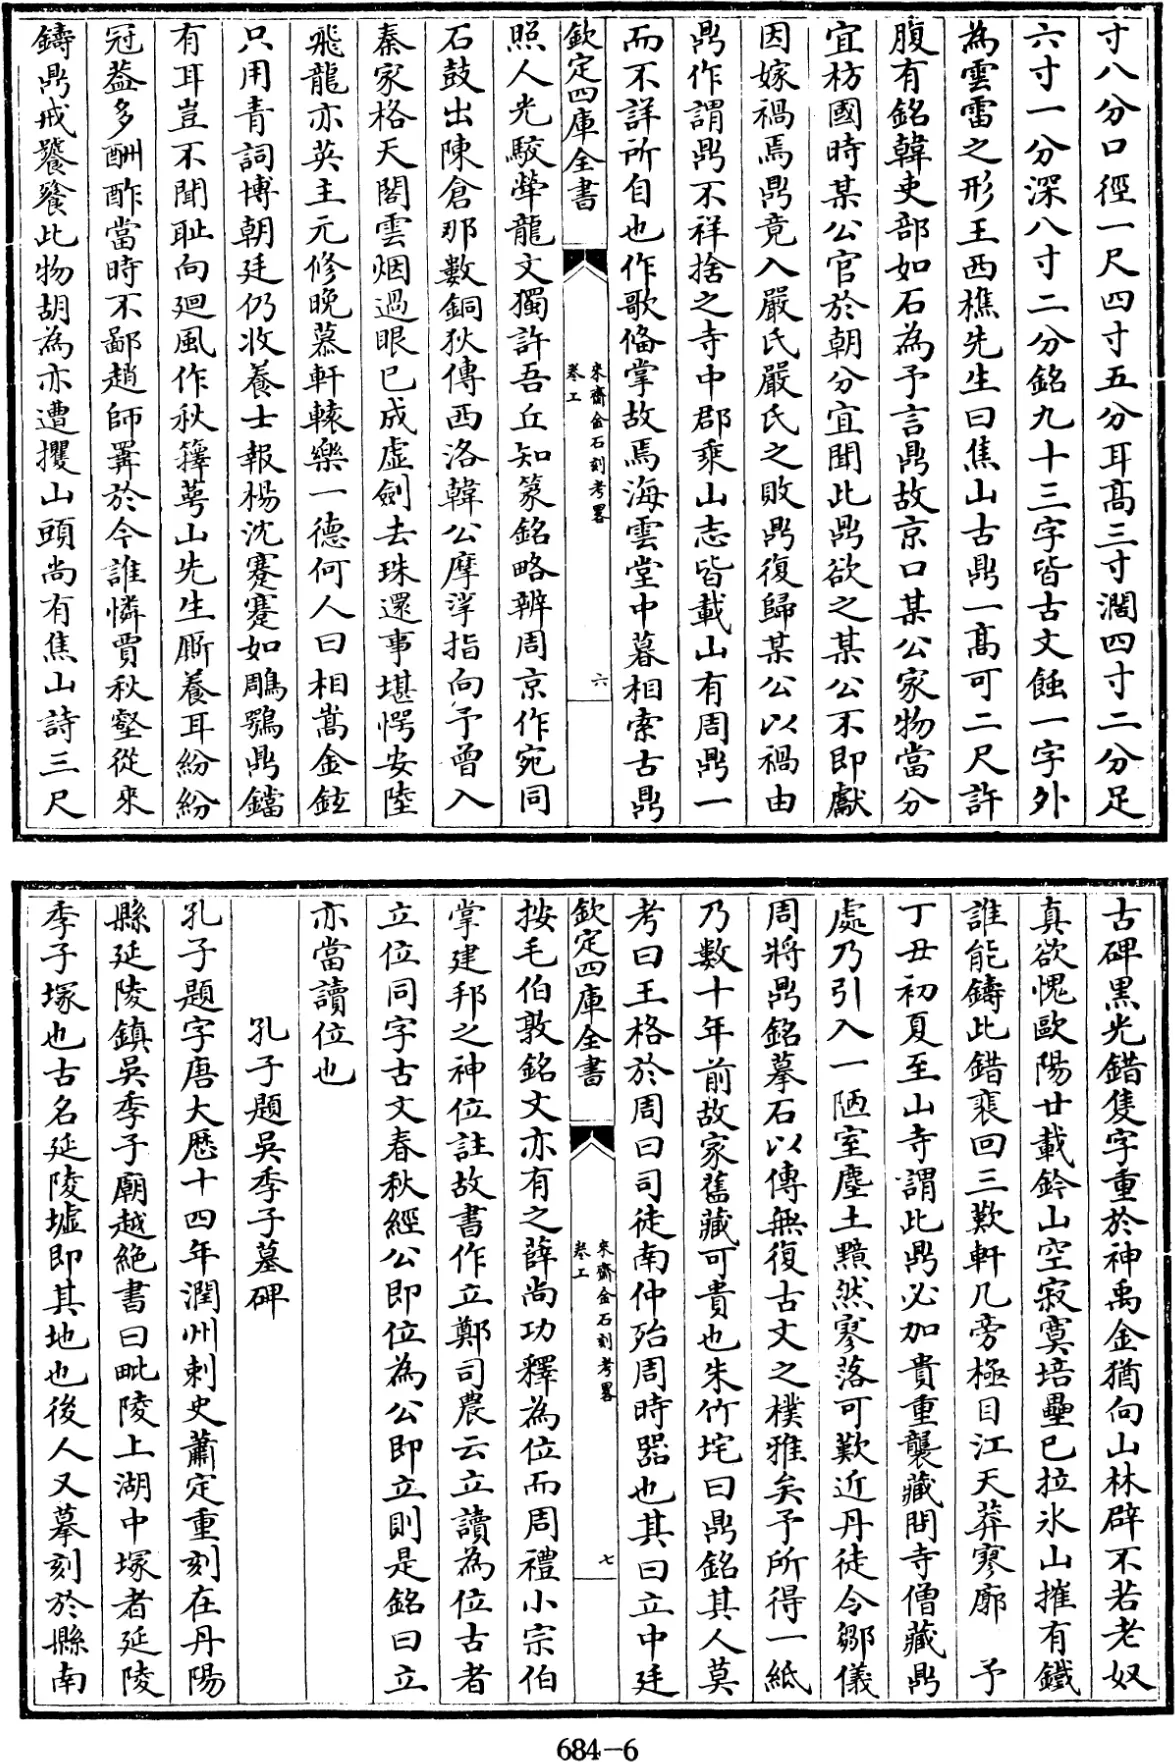 寸八分口徑一尺四寸五分耳髙三寸濶四寸二分足
六寸一分深八寸二分銘九十三字皆古文蝕一字外
為雲雷之形王西樵先生曰焦山古鼎一髙可二尺許
腹有銘韓吏部如石為予言鼎故京口某公家物當分
宜枋國時某公官於朝分宜聞此鼎欲之某公不即獻
因嫁禍焉鼎竟入嚴氏嚴氏之敗鼎復歸某公以禍由
鼎作謂鼎不祥捨之寺中郡乘山志皆載山有周鼎一
而不詳所自也作歌備掌故焉海雲堂中暮相索古鼎
欽定四庫全書
來齋金石刻考畧
卷上
六
照人光駮犖龍文獨許吾丘知篆銘略辨周京作宛同
石鼓出陳倉那數銅狄傳西洛韓公摩挲指向予曾入
秦家格天閣雲烟過眼已成虛劍去珠還事堪愕安陸
飛龍亦英主元修晚慕軒轅樂一德何人曰相嵩金鉉
只用青詞博朝廷仍收養士報楊沈蹇蹇如鵰鶚鼎鐺
有耳豈不聞耻向廻風作秋籜萼山先生厮養耳紛紛
冠葢多酬酢當時不鄙趙師睪於今誰憐賈秋壑從來
鑄鼎戒饕餮此物胡為亦遭攫山頭尚有焦山詩三尺
古碑黒光錯隻字重於神禹金猶向山林辟不若老奴
真欲愧歐陽廿載鈐山空寂寞培壘已拉氷山摧有鐵
誰能鑄此錯裵回三歎軒几旁極目江天莽寥廓　予
丁丑初夏至山寺謂此鼎必加貴重襲藏問寺僧藏鼎
處乃引入一陋室塵土黯然寥落可歎近丹徒令鄒儀
周將鼎銘摹石以傳無復古文之樸雅矣予所得一紙
乃數十年前故家舊藏可貴也朱竹垞曰鼎銘其人莫
考曰王格於周曰司徒南仲殆周時器也其曰立中廷
欽定四庫全書
來齋金石刻考畧
卷上
七
按毛伯敦銘文亦有之薛尚功釋為位而周禮小宗伯
掌建邦之神位註故書作立鄭司農云立讀為位古者
立位同字古文春秋經公即位為公即立則是銘曰立
亦當讀位也
孔子題吳季子墓碑
孔子題字唐大厯十四年潤州刺史蕭定重刻在丹陽
縣延陵鎮吳季子廟越絶書曰毗陵上湖中塚者延陵
季子塚也古名延陵墟即其地也後人又摹刻於縣南
684-6